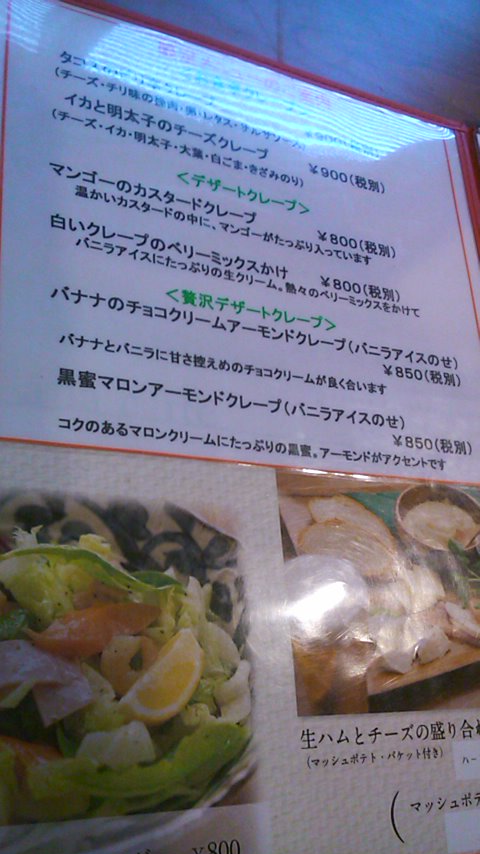 (チーズ・チリ味の挽肉・卵・レタス・サルサソース)
イカと明太子のチーズクレープ
¥900(税別)
(チーズ・イカ・明太子・大葉・白ごま・きざみのり)
<デザートクレープ>
マンゴーのカスタードクレープ
¥800(税別)
温かいカスタードの中に、マンゴーがたっぷり入っています
白いクレープのベリーミックスかけ
¥800(税別)
バニラアイスにたっぷりの生クリーム。熱々のベリーミックスをかけて
<贅沢デザートクレープ>
バナナのチョコクリームアーモンドクレープ(バニラアイスのせ)
¥850(税別)
バナナとバニラに甘さ控えめのチョコクリームが良く合います
黒蜜マロンアーモンドクレープ(バニラアイスのせ)
¥850(税別)
コクのあるマロンクリームにたっぷりの黒蜜。アーモンドがアクセントです
生ハムとチーズの盛り合わ
(マッシュポテト・バケット付き)
ハー
(マッシュポテ
¥800